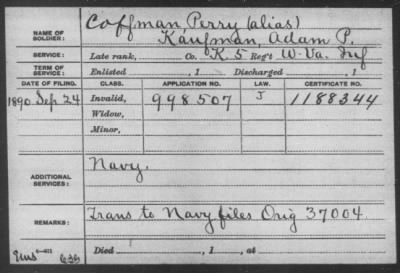 Coffman, Perry (alias)
NAME OF SOLDIER: Kaufman, Adam P.
SERVICE: Late rank, Co. K. 5 Reg't W-Va. Inf
TERM OF SERVICE: Enlisted , 1 Discharged , 1
DATE OF FILING. CLASS. APPLICATION NO. LAW. CERTIFICATE NO.
1890 Sep 24 Invalid, 998507 J 1188344
Widow,
Minor,
ADDITIONAL SERVICES: Navy.
REMARKS: Trans to Navy files Orig 37004.
Died , 1 , at